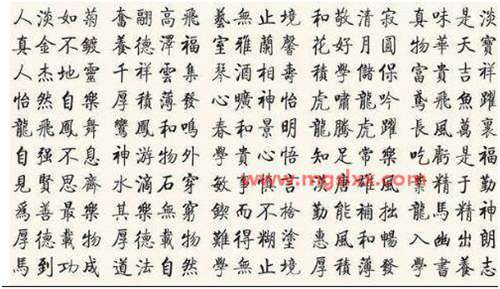 人淡如菊 奮翮高飛 藝無止境 和敬清寂 真味是淡
真金不鍍 養德澤福 室雅蘭馨 花好月圓 物華天寶
人杰地靈 千祥雲集 琴 相壽 學儲 富貴吉祥
怡然自樂 厚積薄發 心曠神怡 虎嘯龍吟 鳶飛魚躍
龍飛鳳舞 鸞鳳和鳴 春和景明 龍騰虎躍 長風萬裏
自强不息 神游物外 學貴心悟 知足常樂 吃虧是福
見賢思齊 水滴石穿 敏 慎 業精于勤
為善最樂 其樂無窮 鍥而不捨 勤能補拙 龍馬精神
厚德載物 厚德載物 難得糊塗 惠風和暢 入幽出朗
馬到功成 道法自然 學無止境 厚積薄發 學書養志
www.mgdxx.com